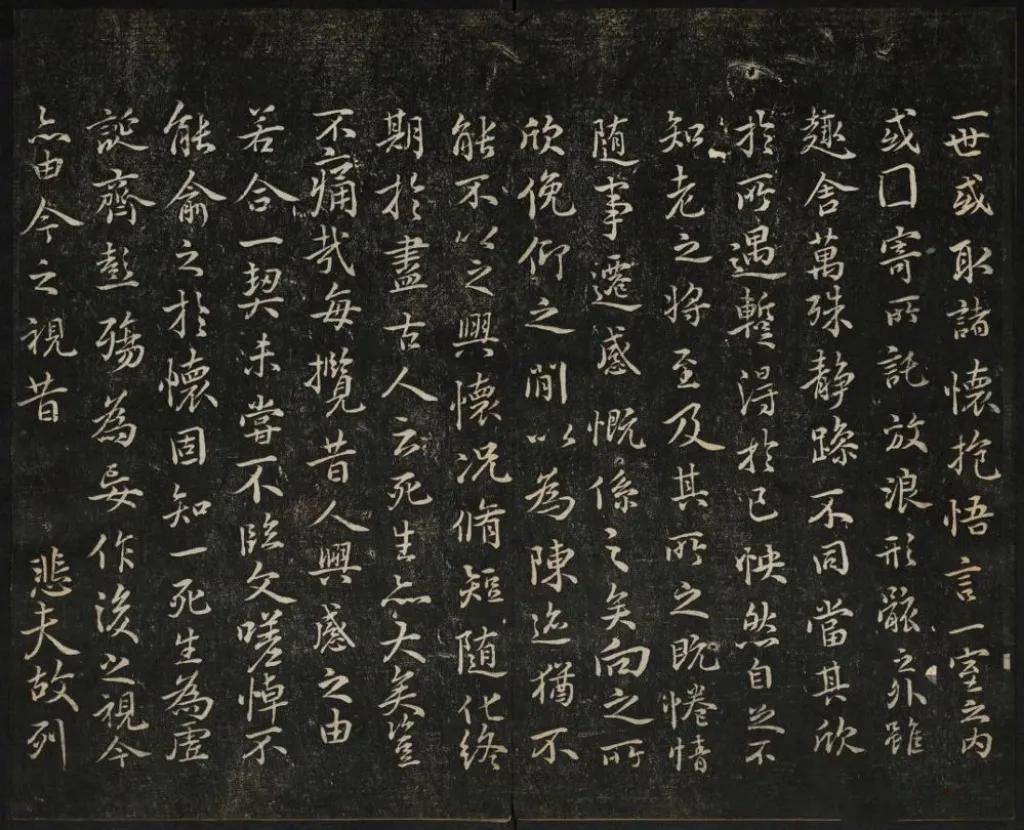 一世或取諸懷抱悟言一室之內
或囗寄所託放浪形骸之外雖
趣舍萬殊靜躁不同當其欣
於所遇暫得於己怏然自足不
知老之將至及其所之既惓情
隨事遷感慨係之矣向之所
欣俛仰之閒以為陳迹猶不
能不以之興懷況脩短隨化終
期於盡古人云死生亦大矣豈
不痛哉每攬昔人興感之由
若合一契未嘗不臨文嗟悼不
能喻之於懷固知一死生為虛
誕齊彭殤為妄作後之視今
亦由今之視昔 悲夫故列